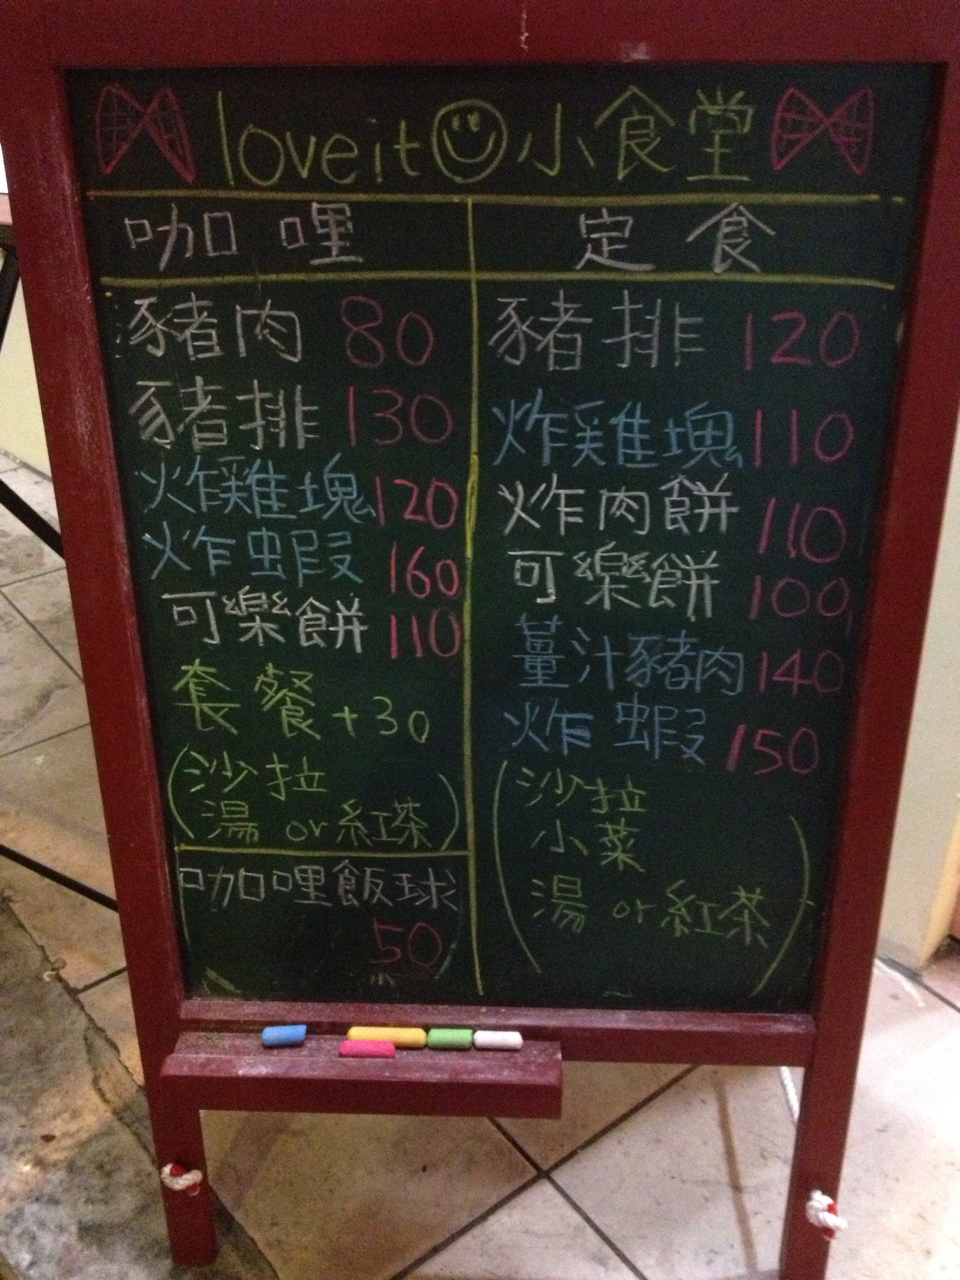 loveit 小食堂
咖哩
豬肉 80
豬排 130
炸雞塊 120
炸蝦 160
可樂餅 110
套餐 +30
(沙拉
湯 or 紅茶)
咖哩飯球
50
定食
豬排 120
炸雞塊 110
炸肉餅 110
可樂餅 100
薑汁豬肉 140
炸蝦 150
(沙拉
小菜
湯 or 紅茶)